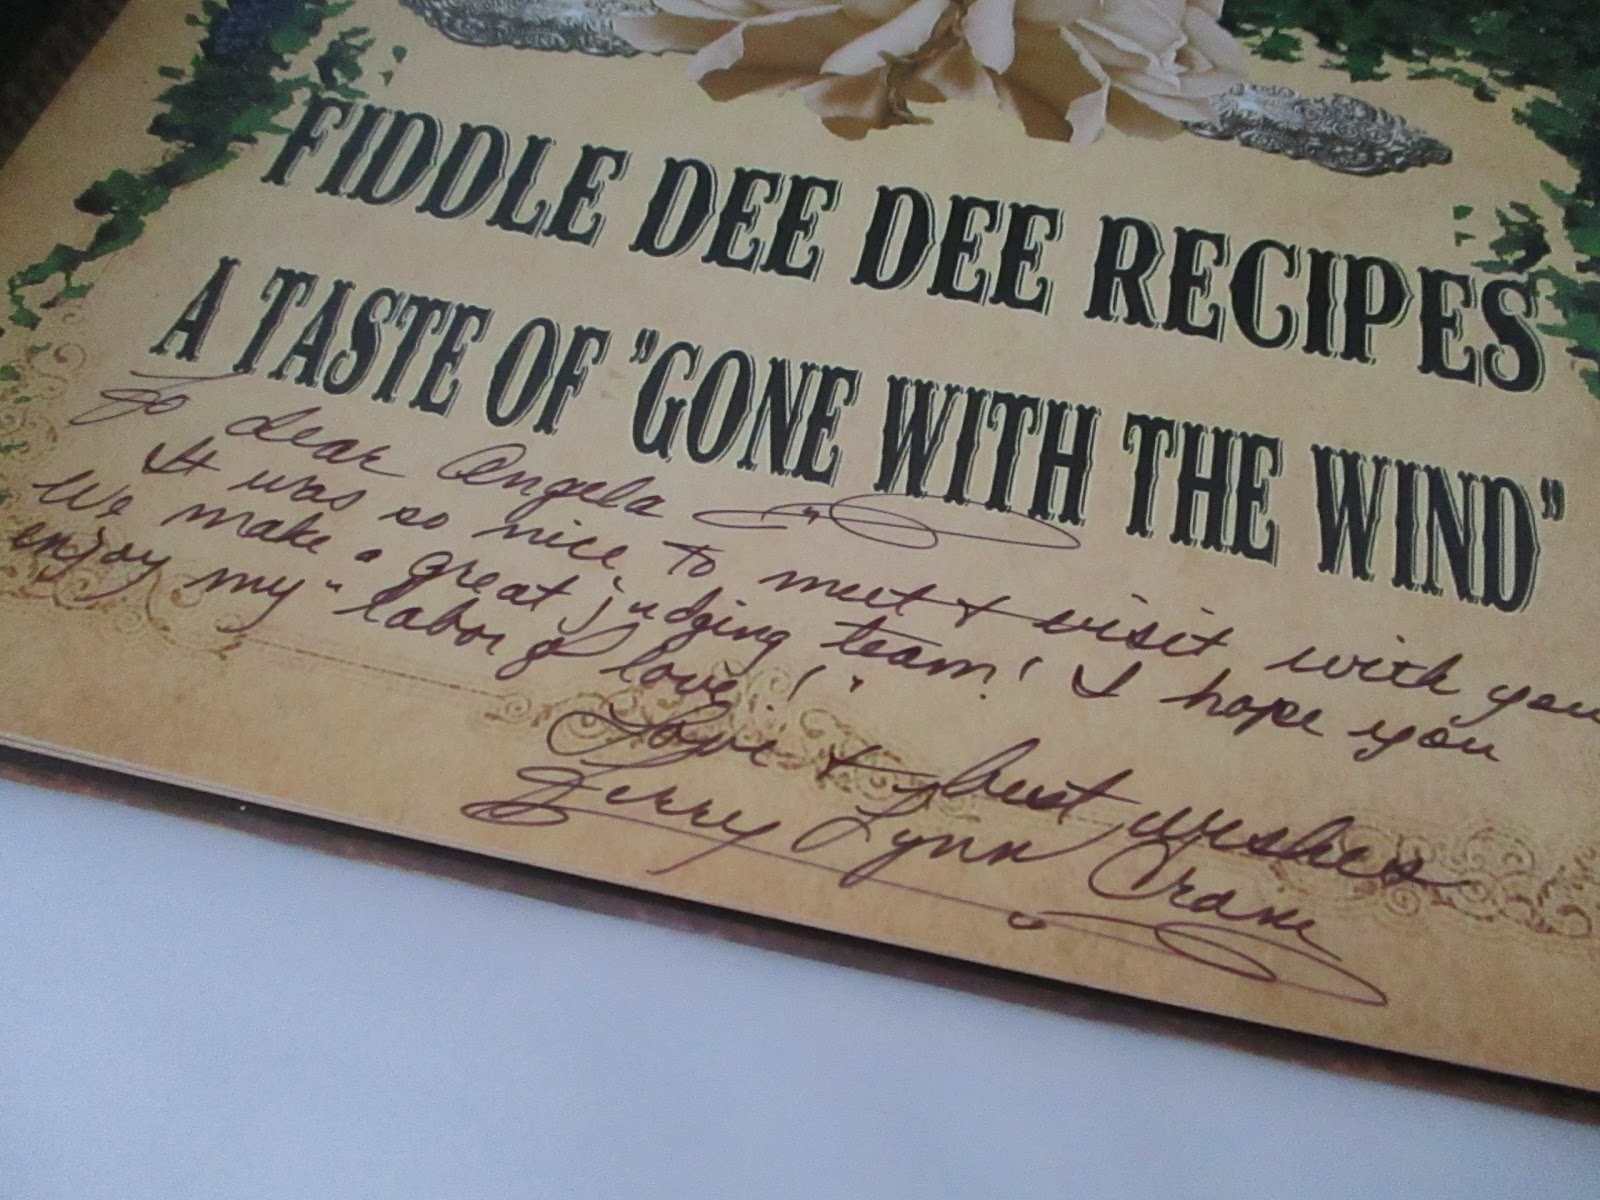 FIDDLE DEE DEE RECIPES
A TASTE OF "GONE WITH THE WIND"
To dear Angela
It was so nice to meet & visit with you
We make a great judging team! I hope you
enjoy my "labor of love!!"
Love & best wishes
Terry Lynn Crane